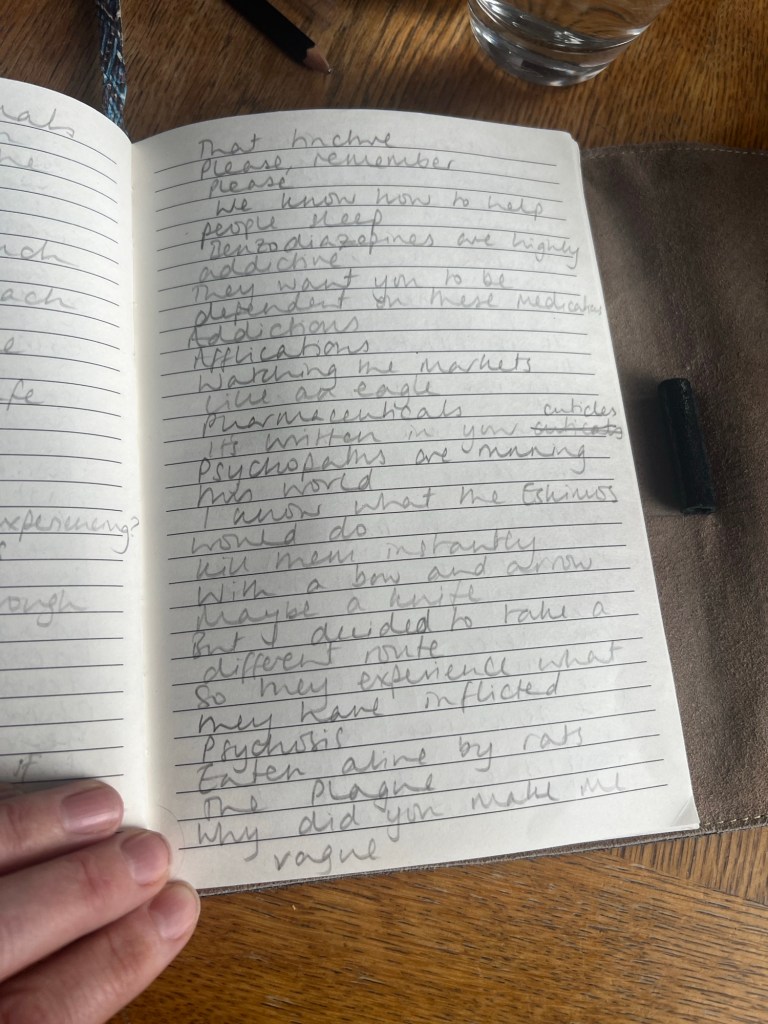 uch
ach
e
fe
experiencing?
rough
if
That tincture
Please, remember
Please
We know how to help
people sleep
Benzodiazepines are highly
addictive
They want you to be
dependent on these medications
Addictions
Afflications
Watching the markets
Like an eagle
Pharmaceuticals
cuticles
It's written in your
Psychopaths are running
this world
I know what the Eskimos
would do
Kill them instantly
With a bow and arrow
Maybe a knife
But I decided to take a
different route
So they experience what
they have inflicted
Psychosis
Eaten alive by rats
The Plague
Why did you make me
vague